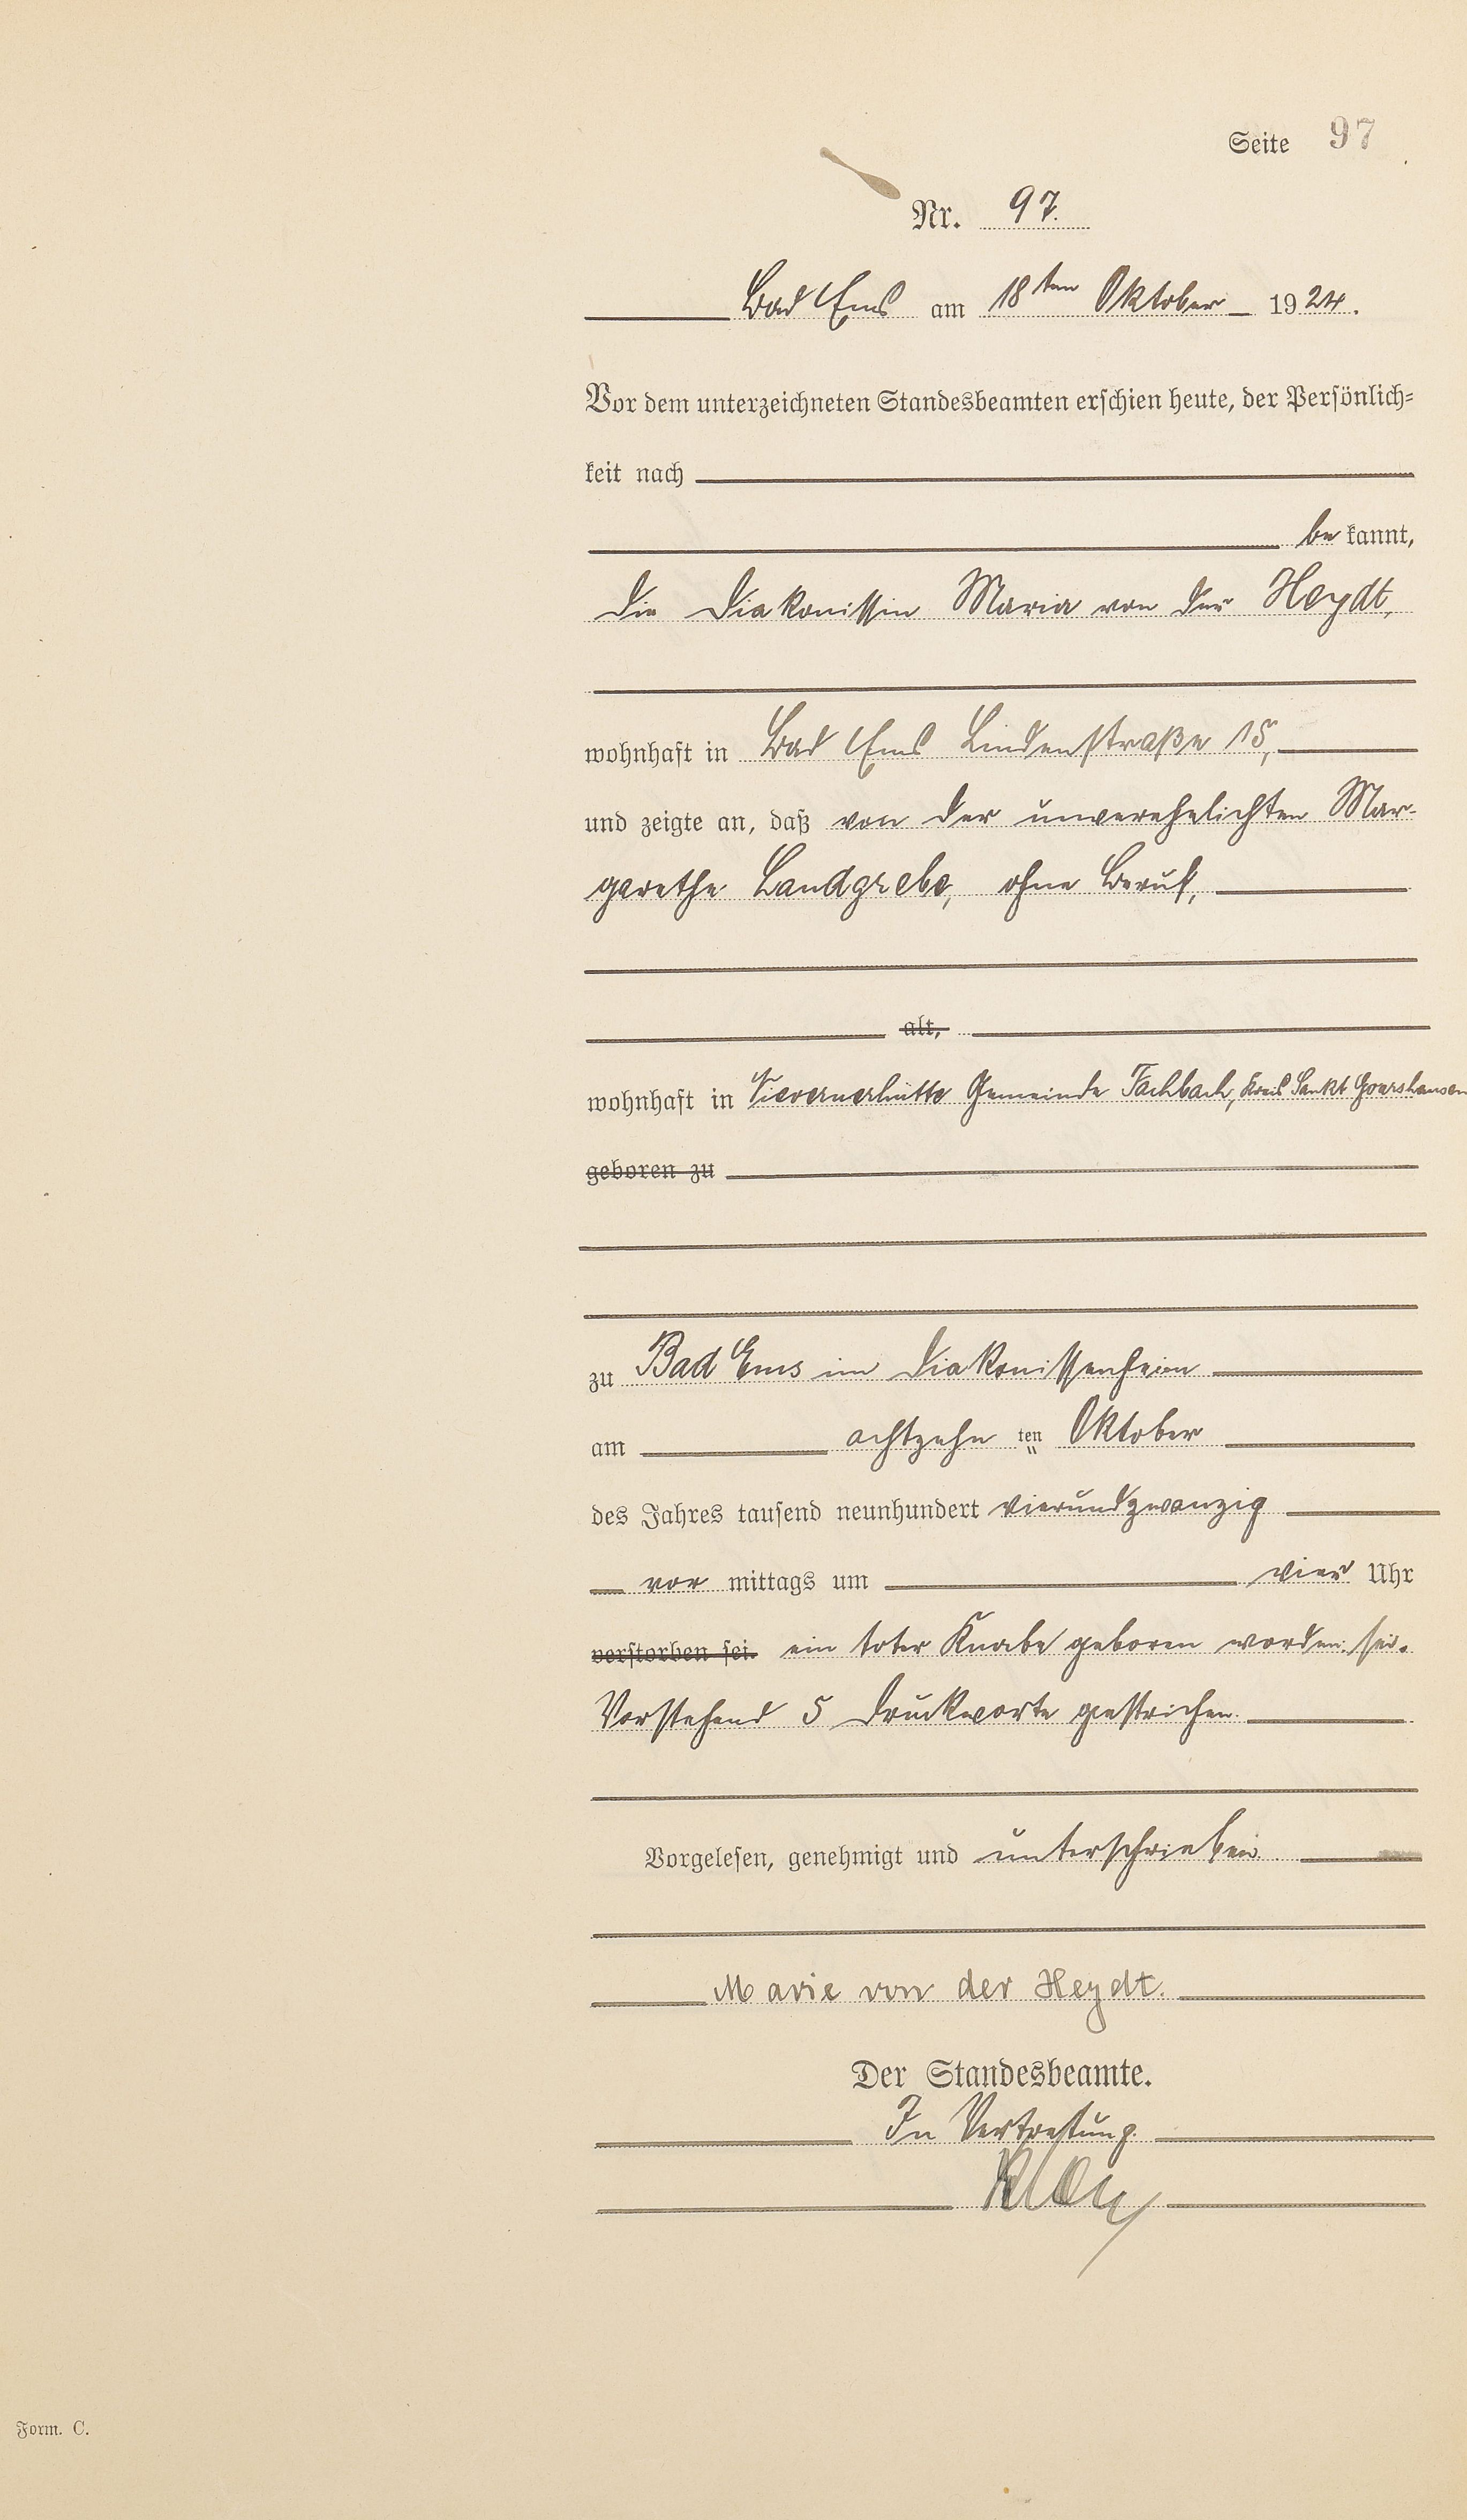 Seite 97
Nr. 97.
Bad Ems am 18ten Oktober 1924.
Vor dem unterzeichneten Standesbeamten erschien heute, der Persönlich-
keit nach
be kannt,
die Diakonissin Maria von der Heydt,
wohnhaft in Bad Ems Lindenstraße 15,
und zeigte an, daß von der unverehelichten Mar-
garethe Landgrebe, ohne Beruf,
alt,
wohnhaft in Nievernerhütte Gemeinde Fachbach, Kreis Sankt Goarshausen
geboren zu
zu Bad Ems im Diakonissenheim
am achtzehn ten Oktober
des Jahres tausend neunhundert vierundzwanzig
vor mittags um vier Uhr
verstorben sei. ein toter Knabe geboren worden sei.
Vorstehend 5 Druckworte gestrichen.
Vorgelesen, genehmigt und unterschrieben.
Marie von der Heydt.
Der Standesbeamte.
In Vertretung.
Form. C.